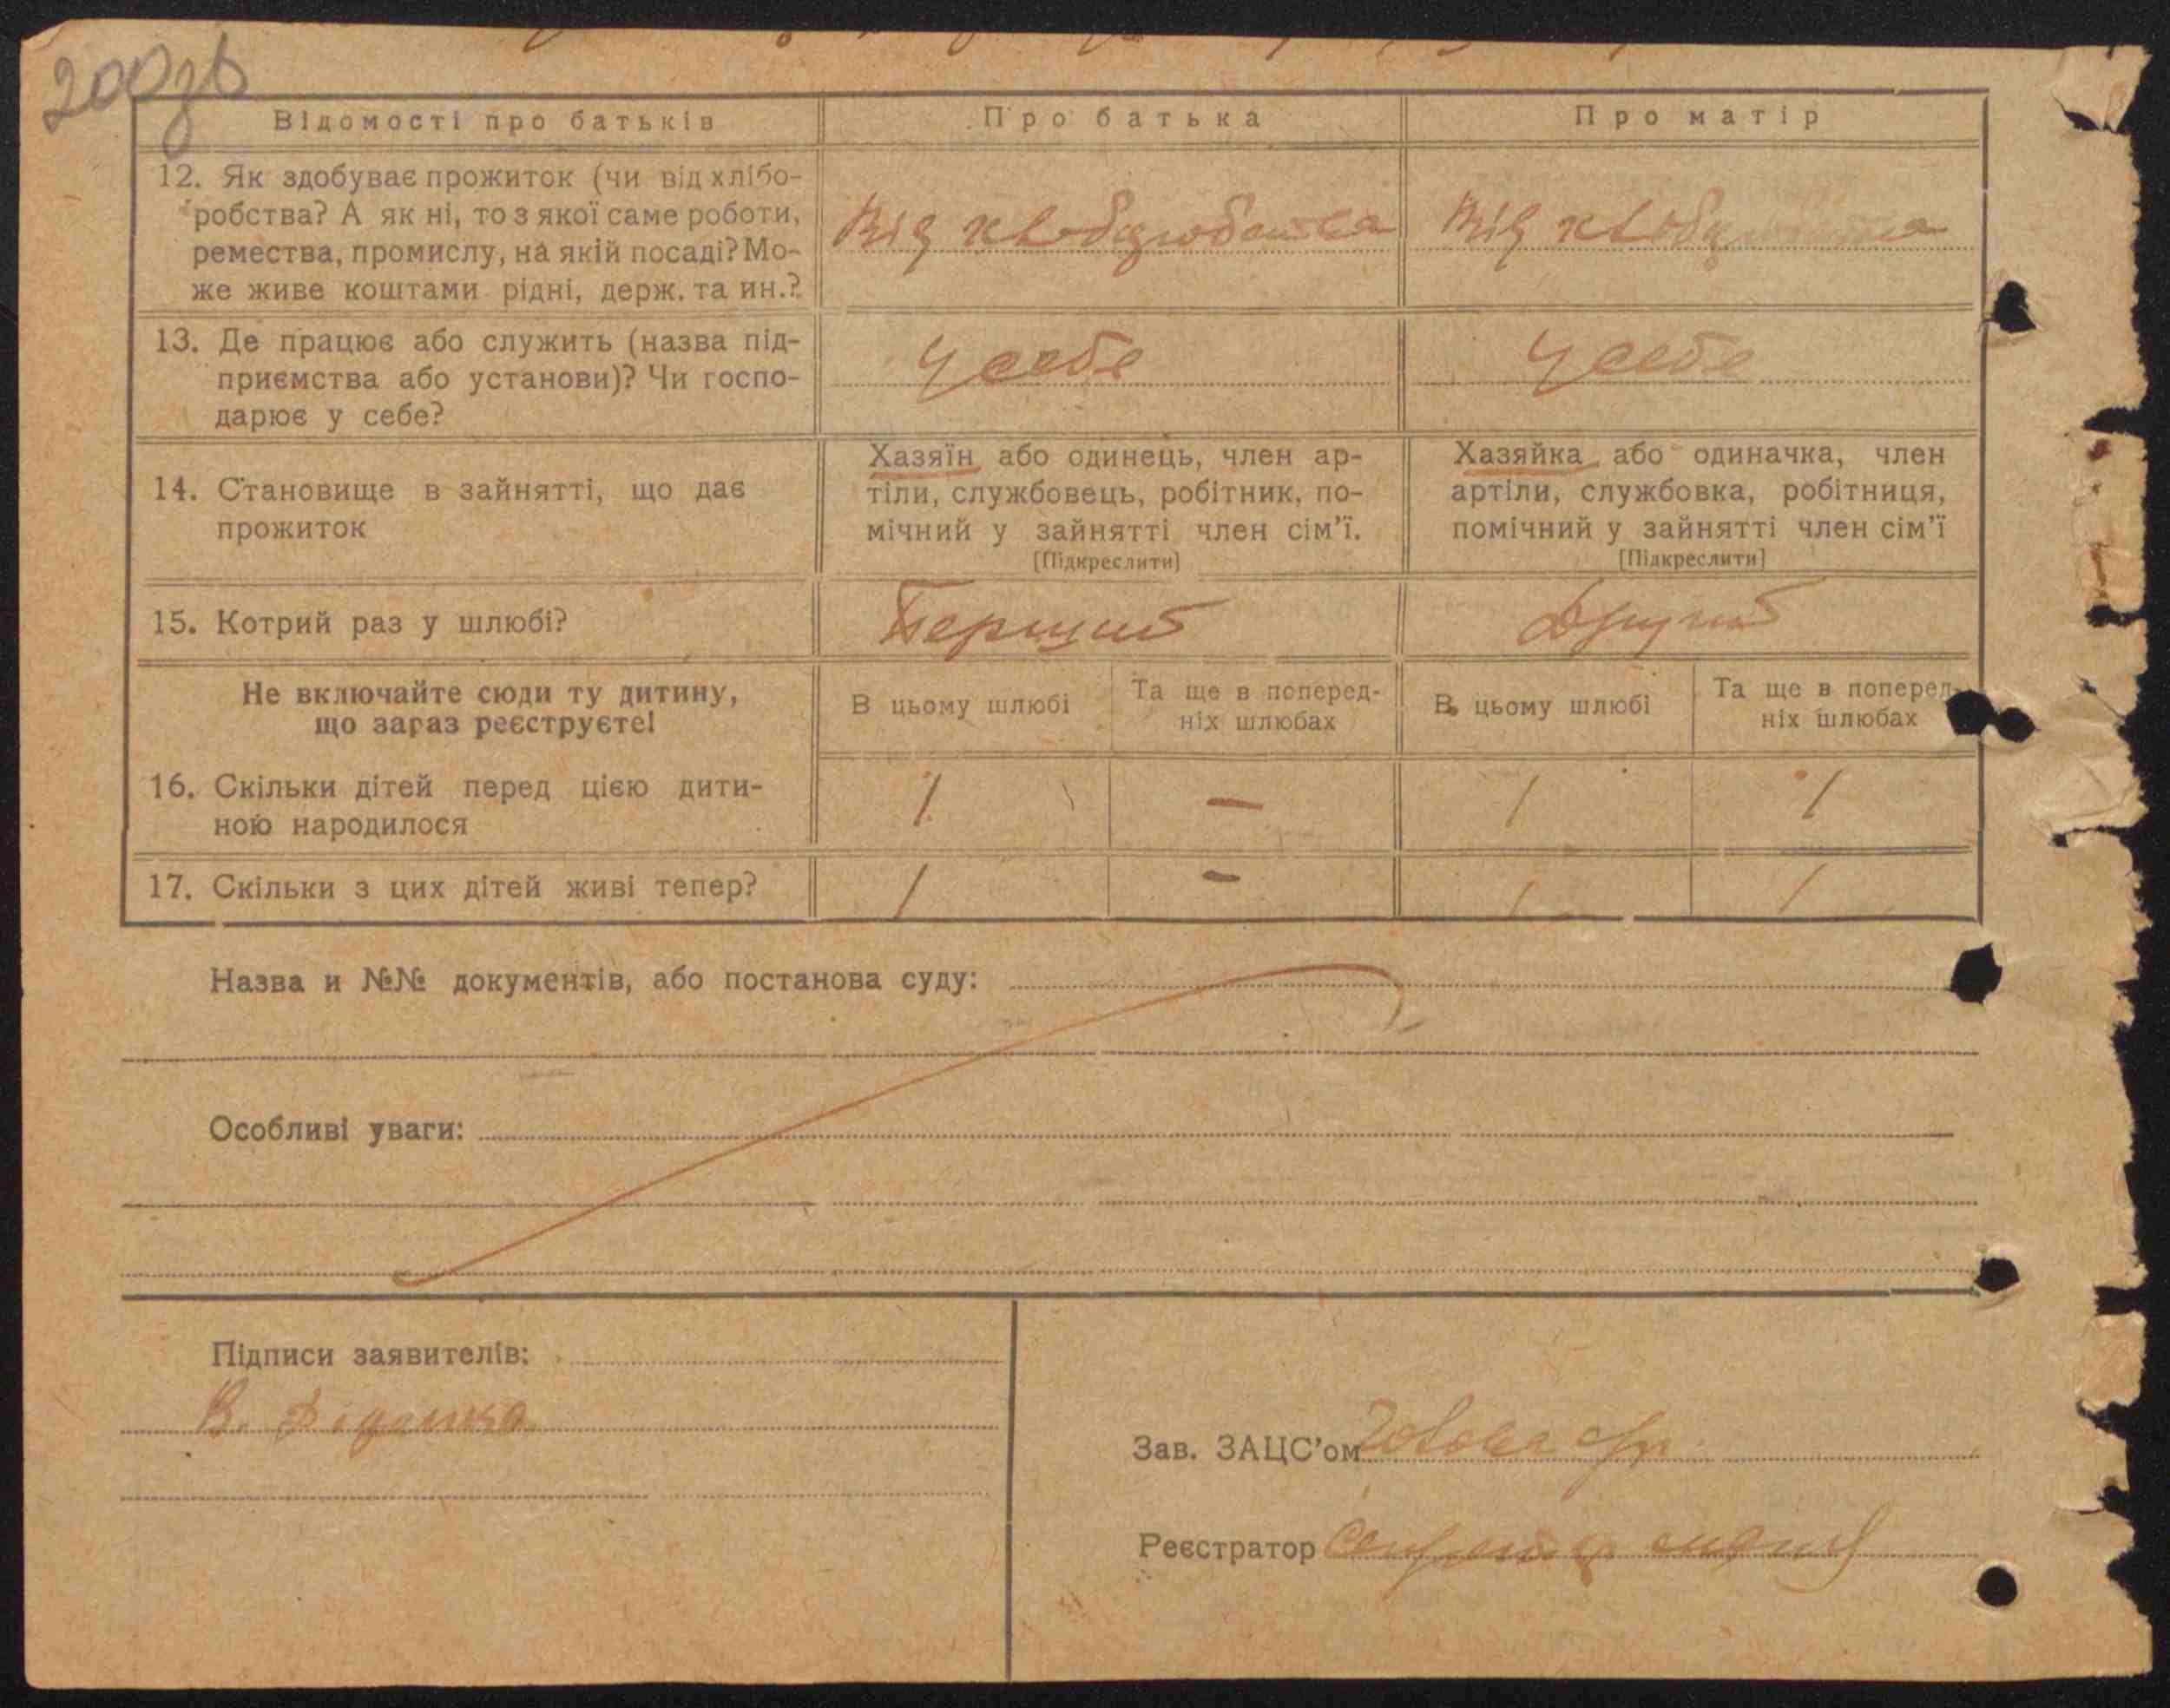 200зв
Відомості про батьків
Про батька
Про матір
12. Як здобуває прожиток (чи від хлібо-
робства? А як ні, то з якої саме роботи,
ремества, промислу, на якій посаді? Мо-
же живе коштами рідні, держ. та ин.?
Від
Від
13. Де працює або служить (назва під-
приємства або установи)? Чи госпо-
дарює у себе?
У себе
У себе
14. Становище в зайнятті, що дає
прожиток
Хазяїн або одинець, член ар-
тіли, службовець, робітник, по-
мічний у зайнятті член сім’ї.
[Підкреслити]
Хазяйка або одиначка, член
артіли, службовка, робітниця,
помічний у зайнятті член сім’ї
[Підкреслити]
15. Котрий раз у шлюбі?
Перший
Другий
Не включайте сюди ту дитину,
що зараз реєструєте!
В цьому шлюбі
Та ще в поперед-
ніх шлюбах
В цьому шлюбі
Та ще в поперед-
ніх шлюбах
16. Скільки дітей перед цією дити-
ною народилося
1
—
1
1
17. Скільки з цих дітей живі тепер?
1
—
1
1
Назва и №№ документів, або постанова суду:
Особливі уваги:
Підписи заявителів:
В.
Зав. ЗАЦС’ом Голова с/р
Реєстратор